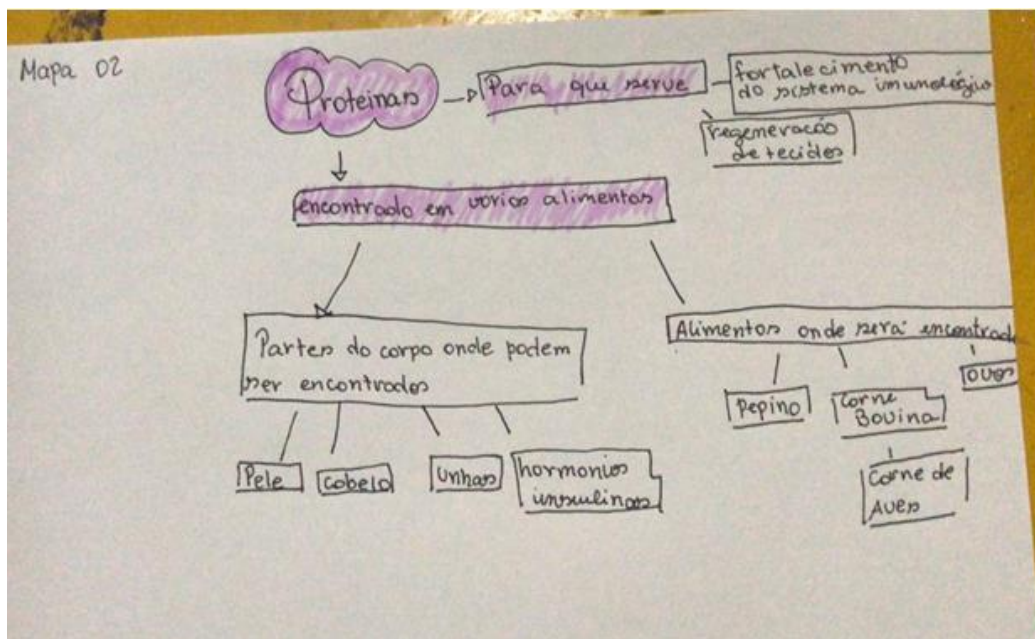 Mapa 02
Proteinas
Para que serve
fortalecimento
do sistema imunológio
regeneração
de tecidos
encontrado em varios alimentos
Partes do corpo onde podem
ser encontrados
Pele
cabelo
unhas
hormonios
insulinas
Alimentos onde será encontrad
Pepino
Carne
Bovina
ovos
Carne de
Aves